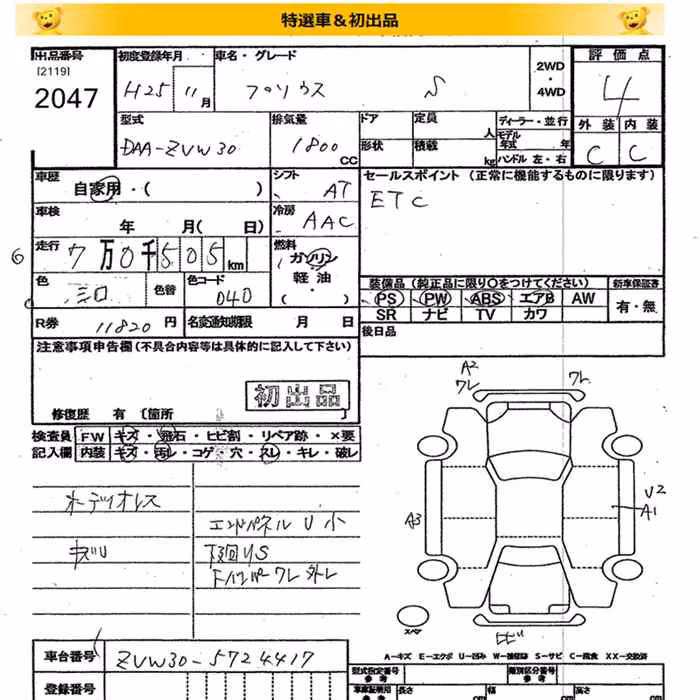 特選車&初出品
出品番号 初度登録年月 車名・グレード 2WD 4WD 評価点
[2119]
2047 H25 11月 プリウス S 4
型式 排気量 ドア 定員 人 ディーラー・並行 外装 内装
モデル年式 年
DAA-ZVW30 1800 CC 形状 積載 kg ハンドル 左・右 C C
車歴 自家用・( ) シフト AT セールスポイント (正常に機能するものに限ります)
ETC
車検 年 月( 日) 冷房 AAC
走行 7万0千505km 燃料 ガソリン 軽油 ・( )
色 色替 色コード 040 装備品 (純正品に限り○をつけてください) 新車保証書
PS PW ABS エアB AW 有・無
SR ナビ TV カワ
R券 11820円 名変通知期限 月 日 後日品
注意事項申告欄 (不具合内容等は具体的に記入して下さい)
初出品
修復歴 有 [箇所 ]
検査員 FW キズ・飛石・ヒビ割・リペア跡・×要
記入欄 内装 キズ・汚レ・コゲ・穴・スレ・キレ・破レ
オーディオレス
エンドパネル U 小
キズU 下廻りS
Fバンパワレ 外レ
A2
ワレ ワレ
A3 U2
A1
スペア
ヒビ
A-キズ E-エクボ U-凹み W-補修跡 S-サビ C-腐食 XX-交換済
車台番号 ZVW30-5724417 型式指定番号 参考 類別区分番号 参考
登録番号 車庫証明用 参考 長さ cm 幅 cm 高さ cm